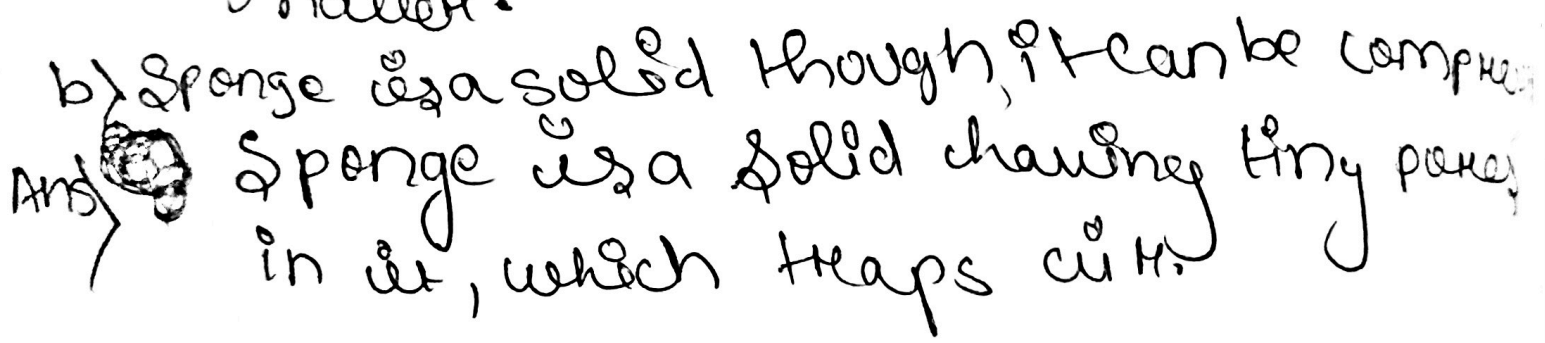 matter.
b) Sponge is a solid though, it can be compre
Ans) Sponge is a solid having tiny pores
in it, which traps air.